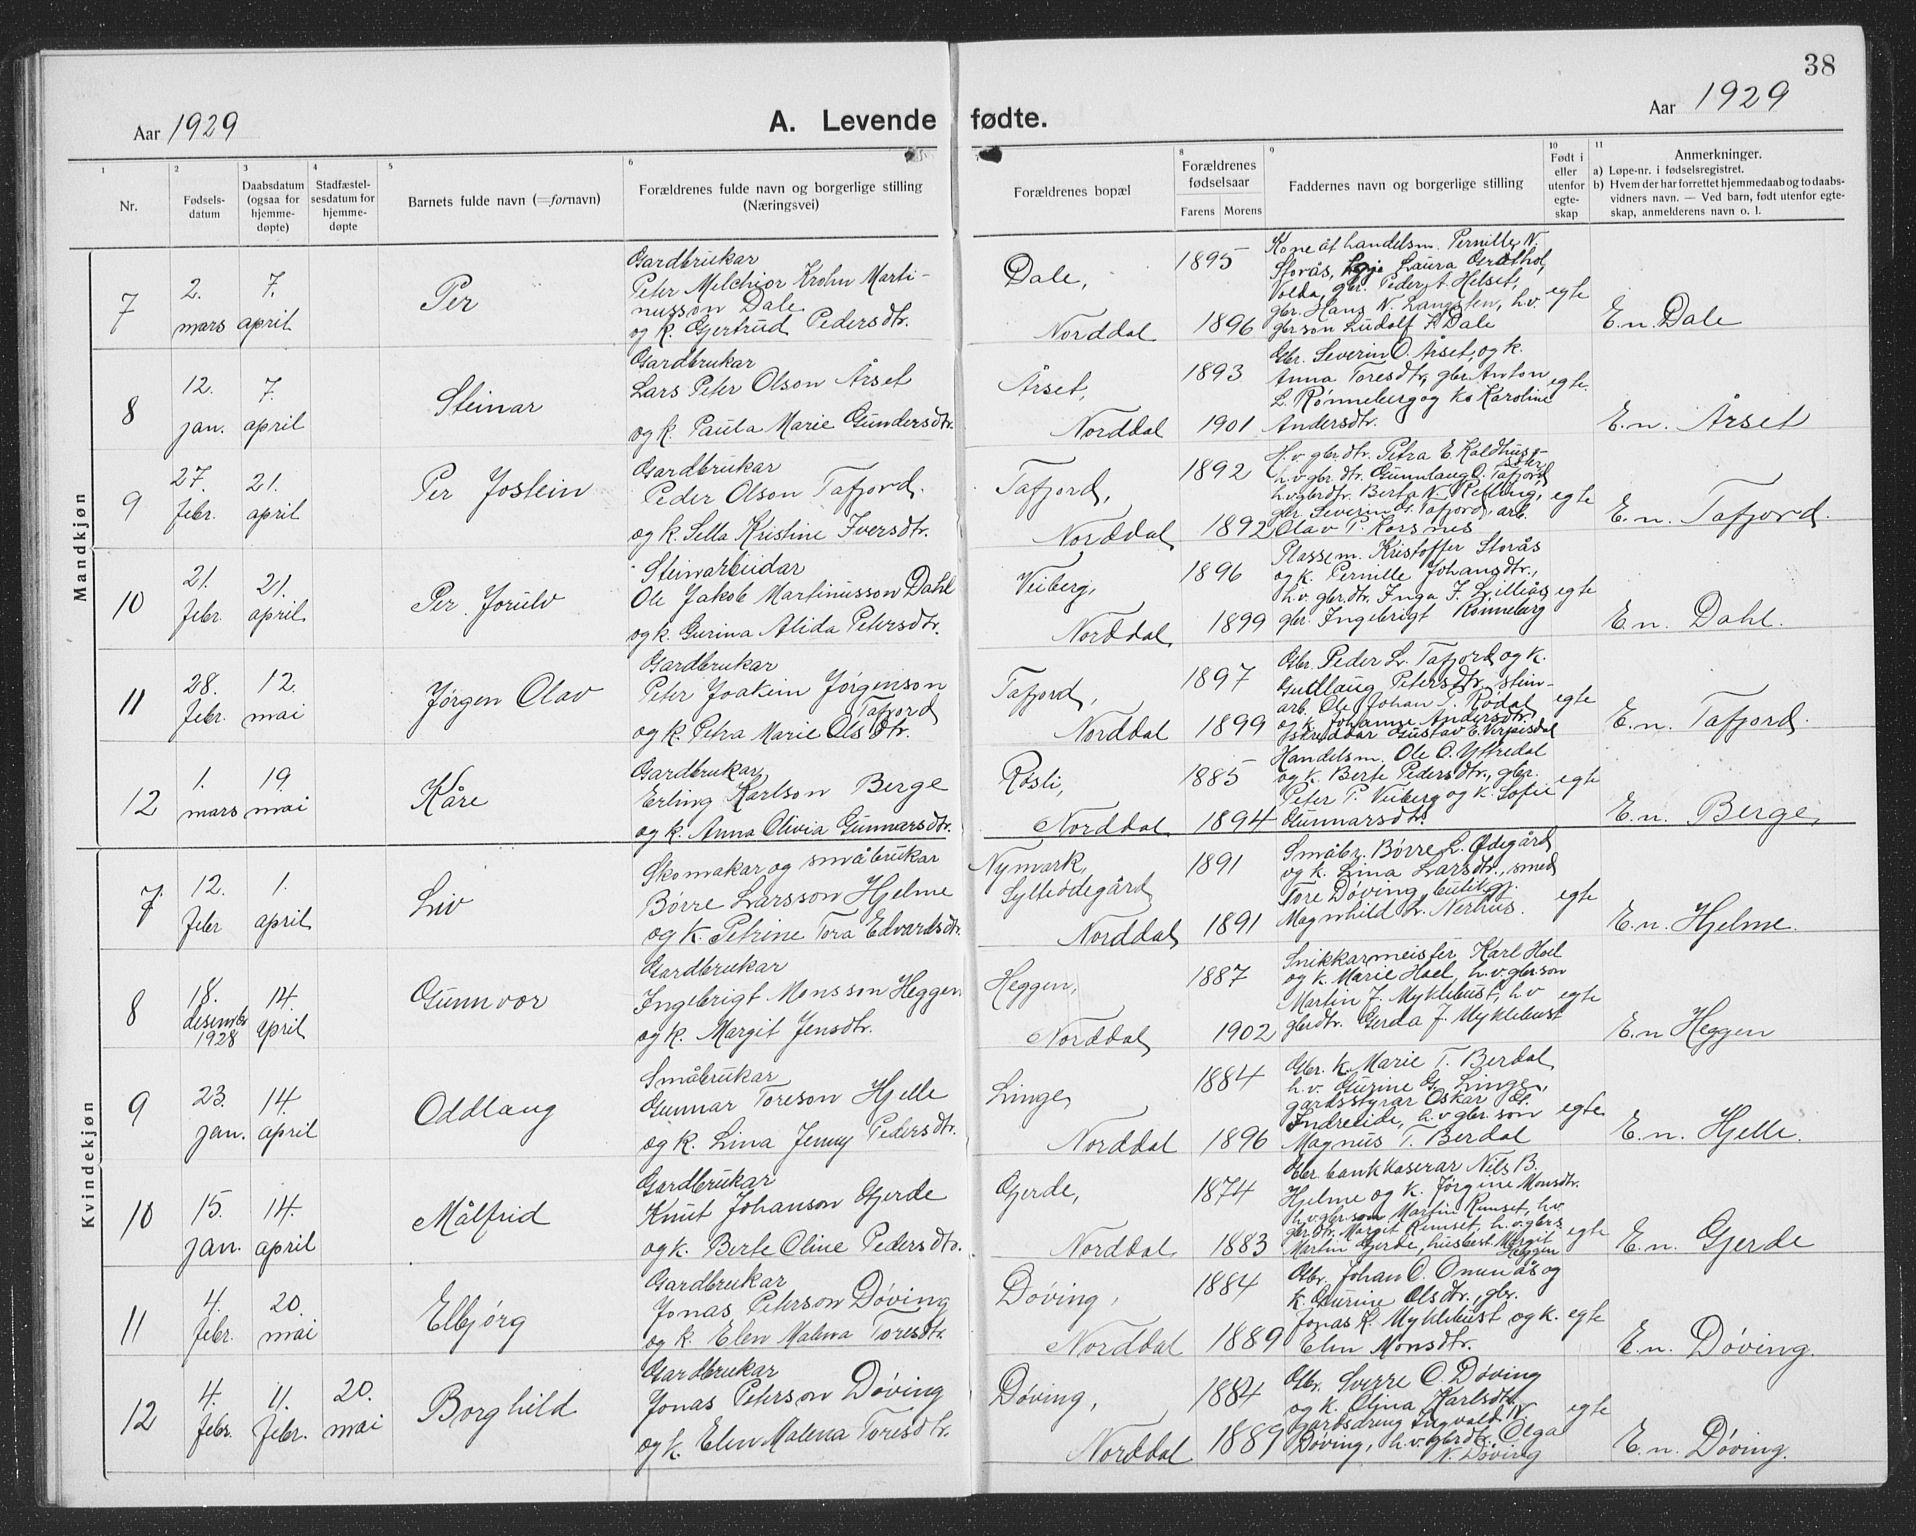 38
Aar 1929
A. Levende fødte.
Aar 1929
1
2
3
4
5
6
8
9
10
11
Nr.
Fødsels-
datum
Daabsdatum
(ogsaa for
hjemme-
døpte)
Stadfæstel-
sesdatum for
hjemme-
døpte
Barnets fulde navn (=fornavn)
Forældrenes fulde navn og borgerlige stilling
(Næringsvei)
Forældrenes bopæl
Forældrenes
fødselsaar
Farens Morens
Faddernes navn og borgerlige stilling
Født i
eller
utenfor
egte-
skap
Anmerkninger.
a) Løpe-nr. i fødselsregistret.
b) Hvem der har forrettet hjemmedaab og to daabs-
vidners navn. — Ved barn, født utenfor egte-
skap, anmelderens navn o. l.
Mandkjøn
7
2.
mars
7.
april
Per
Gardbrukar
Peter Melchior Krohn Marti-
nusson Dale
og k. Gjertrud Pedersdtr.
Dale,
Norddal
1895
1896
Kone af handelsm. Pernille N.
Storås, Laura
Volda, gbr. Peder A. Helset,
gbr. Hans N. Langsten, h.v.
gbr.son Ludolf K. Dale
egte
E.n. Dale
8
12.
jan.
7.
april
Steinar
Gardbrukar
Lars Peter Olson Årset
og k. Paula Marie Gundersdtr.
Årset,
Norddal
1893
1901
Gbr. Severin O. Årset, og k.
Anna Toresdtr, gbr. Anton
L. Rønneberg og ko Karoline
Andersdtr.
egte.
E.n. Årset
9
27.
febr.
21.
april
Per Jostein
Gardbrukar
Peder Olson Tafjord.
og k. Sella Kristine Iversdtr.
Tafjord,
Norddal
1892
1892
H.v. gbr.dtr. Petra E. Kaldhus-
h.v gbr.dtr. Gunnlaug O. Tafjord
h.v gbrdtr. Berta N. Refling,
gbr. Severin Tafjord, arb.
Olav P. Korsnes
egte
E.n. Tafjord.
10
21.
febr.
21.
april
Per Jorulv
Steinarbeidar
Ole Jakob Martinusson Dahl
og k. Gurina Alida Petersdtr.
Veiberg,
Norddal
1896
1899
Plassem. Kristoffer Storås
og k. Pernille Johansdtr.,
h.v. gbr.dtr. Inga J. Lilliås
gbr. Ingebrigt Rønneberg
egte
E.n. Dahl.
11
28.
febr.
12.
mai
Jørgen Olav
Gardbrukar
Peter Joakim Jørgenson
Tafjord
og k. Petra Marie Olsdtr.
Tafjord,
Norddal
1897
1899
Gbr. Peder L. Tafjord og k.
Gudlaug Petersdtr, stein-
arb. Ole Johan T. Rødal
og k. Johanne Andersdtr,
skreddar Gustav E.
egte
E.n. Tafjord.
12
1.
mars
19.
mai
Kåre
Gardbrukar
Erling Karlson Berge
og k. Anna Olivia Gunnarsdtr.
Røsli,
Norddal
1885
1894
Handelsm. Ole O. Yttredal
og k. Berte Pedersdtr., gbr.
Peter P. Veiberg og k. Sofie
Gunnarsdtr.
egte
E.n. Berge
Kvindekjøn
7
12.
febr
1.
april
Liv
Skomakar og småbrukar
Børre Larsson Hjelme
og k. Petrine Tora Edvardsdtr.
Nymark,
Sylteødegård
Norddal
1891
1891
Småbr. Børre L. Ødegård
og k. Lina Larsdtr., smed
Tore Døving, butikj.
Magnhild L. Nerhus.
egte
E.n. Hjelme.
8
18.
desember
1928
14
april
Gunnvor
Gardbrukar
Ingebrigt Monsson Heggen
og k. Margit Jensdtr.
Heggen,
Norddal
1887
1902
Snikkarmeister Karl Hoel
og k. Marie Hoel, h.v. gbr.son
Martin J. Myklebust, h.v
gbrdtr. Gerda J. Myklebust
egte
E.n Heggen
9
23.
jan.
14.
april
Oddlaug
Småbrukar
Gunnar Toreson Hjelle
og k. Lina Jenny Pedersdtr.
Linge,
Norddal
1884
1896
Gbr. k. Marie T. Berdal
h.v. Gurine G. Linge,
gardsstyrar Oskar El.
Indreeide, h.v gbr. son
Magnus T. Berdal
egte.
E.n. Hjelle.
10
15.
jan.
14.
april
Målfrid
Gardbrukar
Knut Johanson Gjerde
og k. Berte Oline Pedersdtr.
Gjerde,
Norddal
1874
1883
Gbr. bankkaserar Nils B.
Hjelme og k. Jørgine Monsdtr.
h.v.gbr.son Martin Remset, h.v.
gbr.dtr. Margit Remset, h.v. gbr.s
Martin Gjerde, husbest. Margit
Heggen
egte
E.n. Gjerde
11
4.
febr.
20.
mai
Elbjørg
Gardbrukar
Jonas Peterson Døving
og k. Elen Malena Toresdtr.
Døving,
Norddal
1884
1889
Gbr. Johan O. Omenås og
k. Gurine Olsdtr., gbr.
Jonas K. Myklebust og k.
Elen Monsdtr.
egte
E.n. Døving.
12
4.
febr.
11.
febr.
20.
mai
Borghild
Gardbrukar
Jonas Peterson Døving
og k. Elen Malena Toresdtr.
Døving,
Norddal
1884
1889
Gbr. Sverre O. Døving
og k. Olina Karlsdtr.
gardsdreng Ingvald N.
Døving, h.v. gbrdtr. Olga
N. Døving
egte
E.n. Døving.